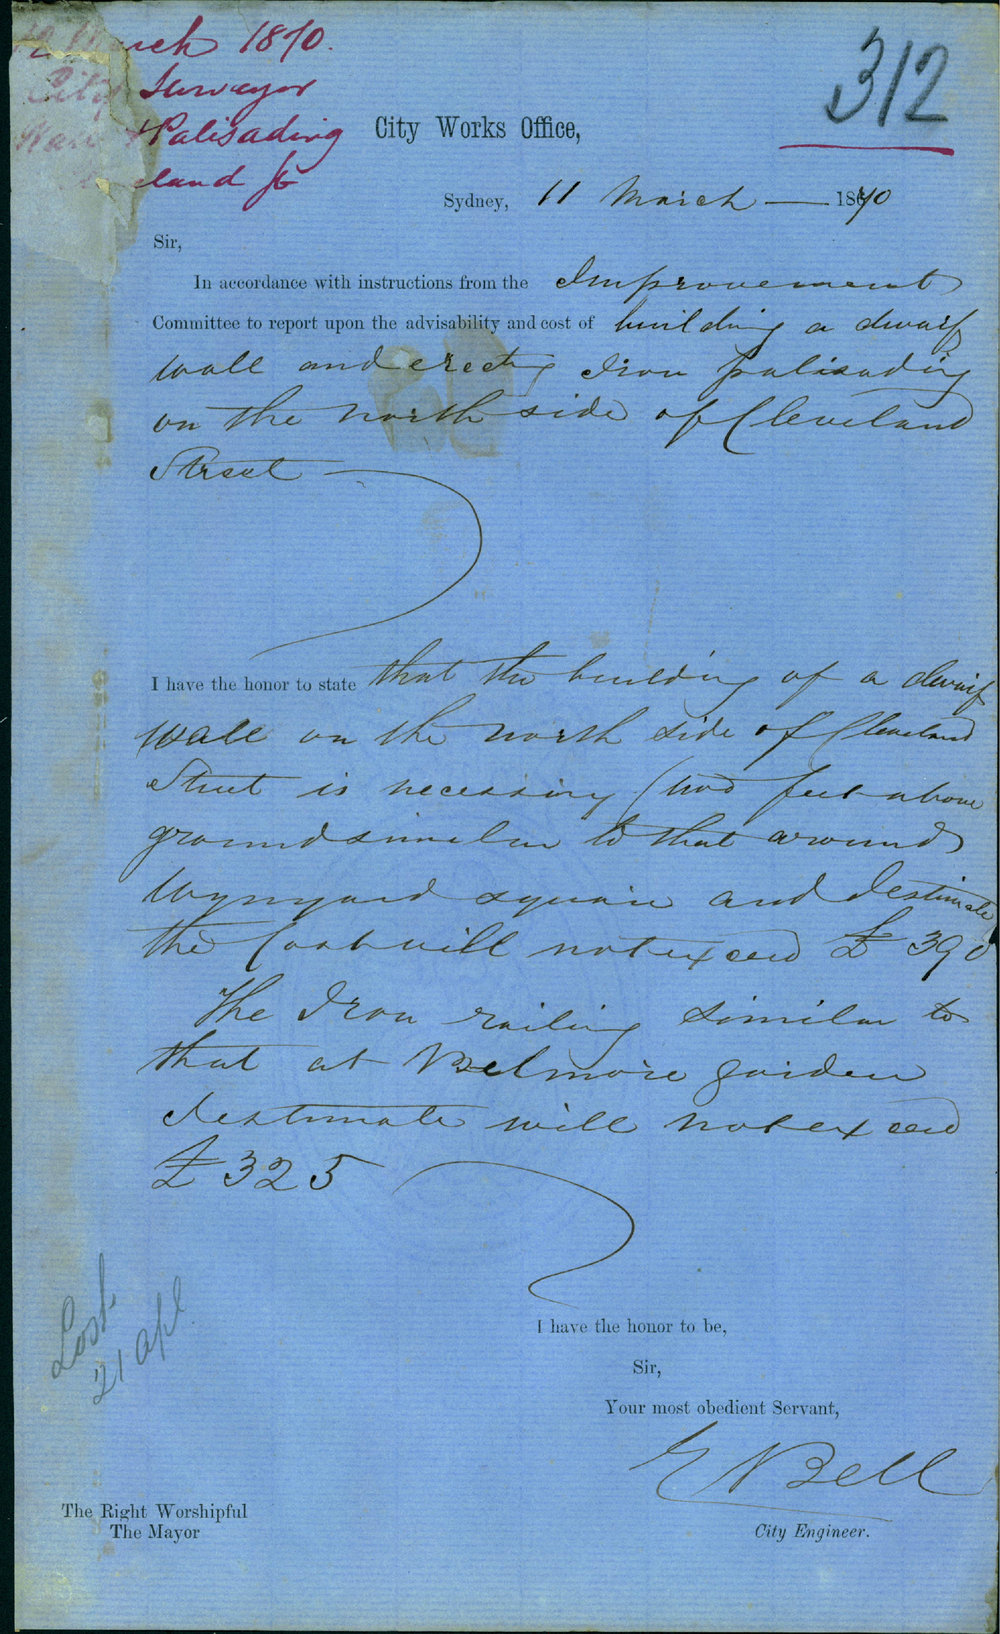 March 1870.
City Surveyor
Wall & Palisading
Cleveland St
312
City Works Office,
Sydney, 11 March — 1870
Sir,
In accordance with instructions from the Improvement
Committee to report upon the advisability and cost of building a dwarf
wall and erecting Iron palisading
on the north side of Cleveland
Street
I have the honor to state that the building of a dwarf
wall on the north side of Cleveland
Street is necessary (two feet above
ground similar to that around
Wynyard square and I estimate
the Cost will not exceed £390
The Iron railing similar to
that at Belmore garden
I estimate will not exceed
£325
Lost
21 Apl
I have the honor to be,
Sir,
Your most obedient Servant,
E Bell
City Engineer.
The Right Worshipful
The Mayor